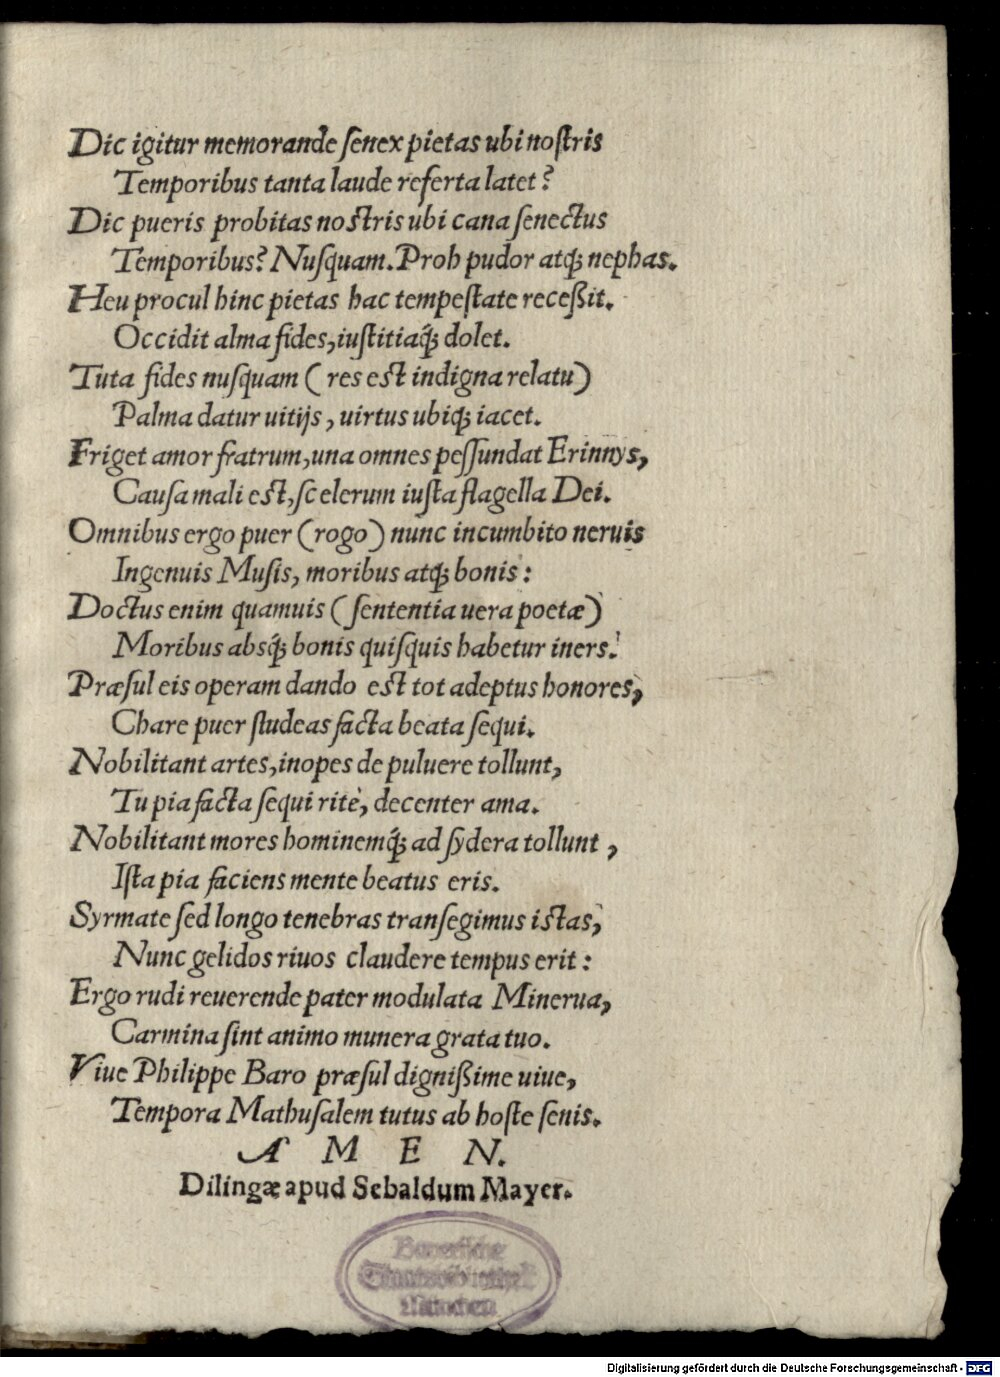 Dic igitur memorande ſenex pietas ubi noſtris
Temporibus tanta laude referta latet?
Dic pueris probitas noſtris ubi cana ſenectus
Temporibus? Nuſquam. Proh pudor atq́; nephas.
Heu procul hinc pietas hac tempeſtate receßit.
Occidit alma fides, iuſtitiaq́; dolet.
Tuta fides nuſquam (res eſt indigna relatu)
Palma datur uitijs, uirtus ubiq; iacet.
Friget amor fratrum, una omnes peſſundat Erinnys,
Cauſa mali eſt, ſcelerum iuſta flagella Dei.
Omnibus ergo puer (rogo) nunc incumbito neruis
Ingenuis Muſis, moribus atq; bonis:
Doctus enim quamuis (ſententia uera poetæ)
Moribus absq́; bonis quiſquis habetur iners.
Præſul eis operam dando eſt tot adeptus honores,
Chare puer ſtudeas facta beata ſequi.
Nobilitant artes, inopes de puluere tollunt,
Tu pia facta ſequi ritè, decenter ama.
Nobilitant mores hominemq́; ad ſydera tollunt,
Iſta pia faciens mente beatus eris.
Syrmate ſed longo tenebras tranſegimus iſtas,
Nunc gelidos riuos claudere tempus erit:
Ergo rudi reuerende pater modulata Minerua,
Carmina ſint animo munera grata tuo.
Viue Philippe Baro præſul dignißime uiue,
Tempora Mathuſalem tutus ab hoſte ſenis.
A M E N.
Dilingæ apud Sebaldum Mayer.
Bayerische
Staatsbibliothek
München
Digitalisierung gefördert durch die Deutsche Forschungsgemeinschaft - DFG